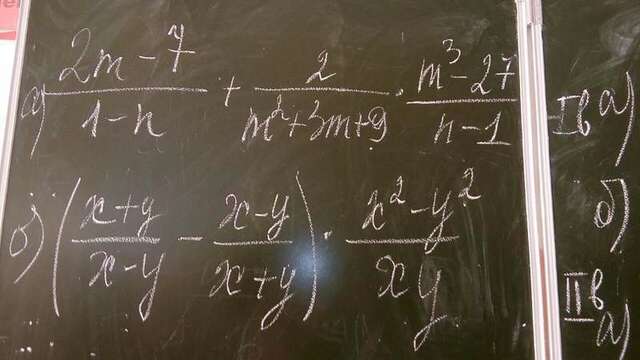 а) (2m - 7)/(1 - n) + 2/(m² + 3m + 9) · (m³ - 27)/(n - 1)
б) ((x + y)/(x - y) - (x - y)/(x + y)) · (x² - y²)/(xy)
Iв а)
б)
IIв
а)